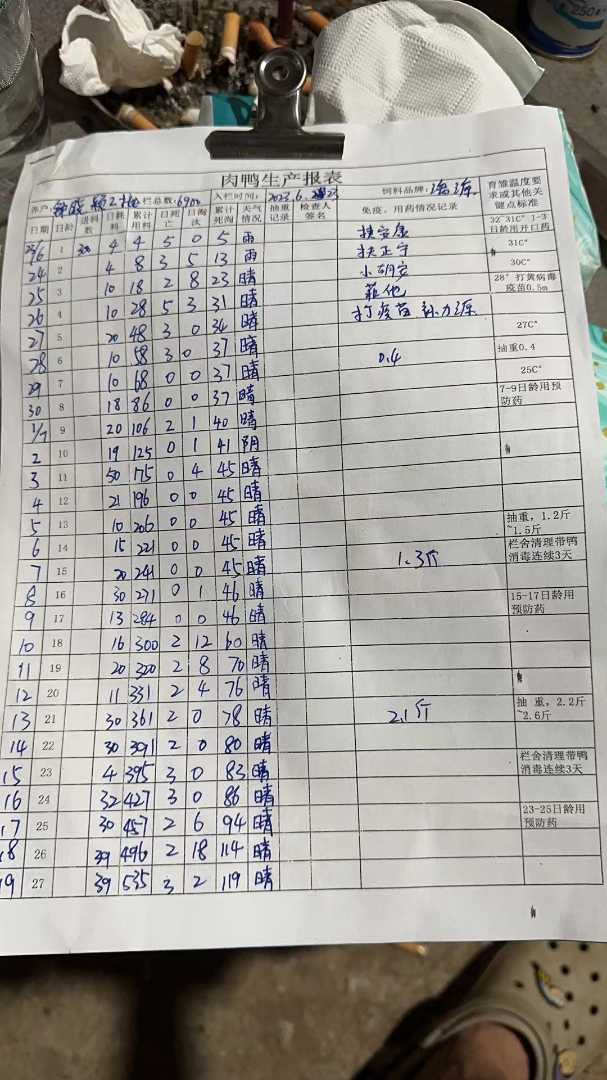 250
肉鸭生产报表
养户 栏总数:6900 入栏时间:2023.6.23 饲料品牌:
日期 日龄 进料数 日耗料 累计用料 日死亡 日淘汰 累计死淘 天气情况 抽重记录 检查人签名 免疫、用药情况记录 育雏温度要求或其他关键点标准
23/6 1 4 4 5 0 5 雨 扶安康 32~31C° 1-3日龄用开口药
24 2 4 8 3 5 13 雨 扶正宁 31C°
25 3 10 18 2 8 23 晴 30C°
26 4 10 28 5 3 31 晴 28° 打黄病毒疫苗0.5m
27 5 20 48 3 0 34 晴 打疫苗 27C°
28 6 10 58 3 0 37 晴 0.4 抽重0.4
29 7 10 68 0 0 37 晴 25C°
30 8 18 86 0 0 37 晴 7-9日龄用预防药
1/7 9 20 106 2 1 40 晴
2 10 19 125 0 1 41 阴
3 11 50 175 0 4 45 晴
4 12 21 196 0 0 45 晴
5 13 10 206 0 0 45 晴 抽重,1.2斤~1.5斤
6 14 15 221 0 0 45 晴 栏舍清理带鸭消毒连续3天
7 15 20 241 0 0 45 晴 1.3斤
8 16 30 271 0 1 46 晴 15-17日龄用预防药
9 17 13 284 0 0 46 晴
10 18 16 300 2 12 60 晴
11 19 20 320 2 8 70 晴
12 20 11 331 2 4 76 晴
13 21 30 361 2 0 78 晴 2.1斤 抽重,2.2斤~2.6斤
14 22 30 391 2 0 80 晴
15 23 4 395 3 0 83 晴 栏舍清理带鸭消毒连续3天
16 24 32 427 3 0 86 晴
17 25 30 457 2 6 94 晴 23-25日龄用预防药
18 26 39 496 2 18 114 晴
19 27 39 535 3 2 119 晴